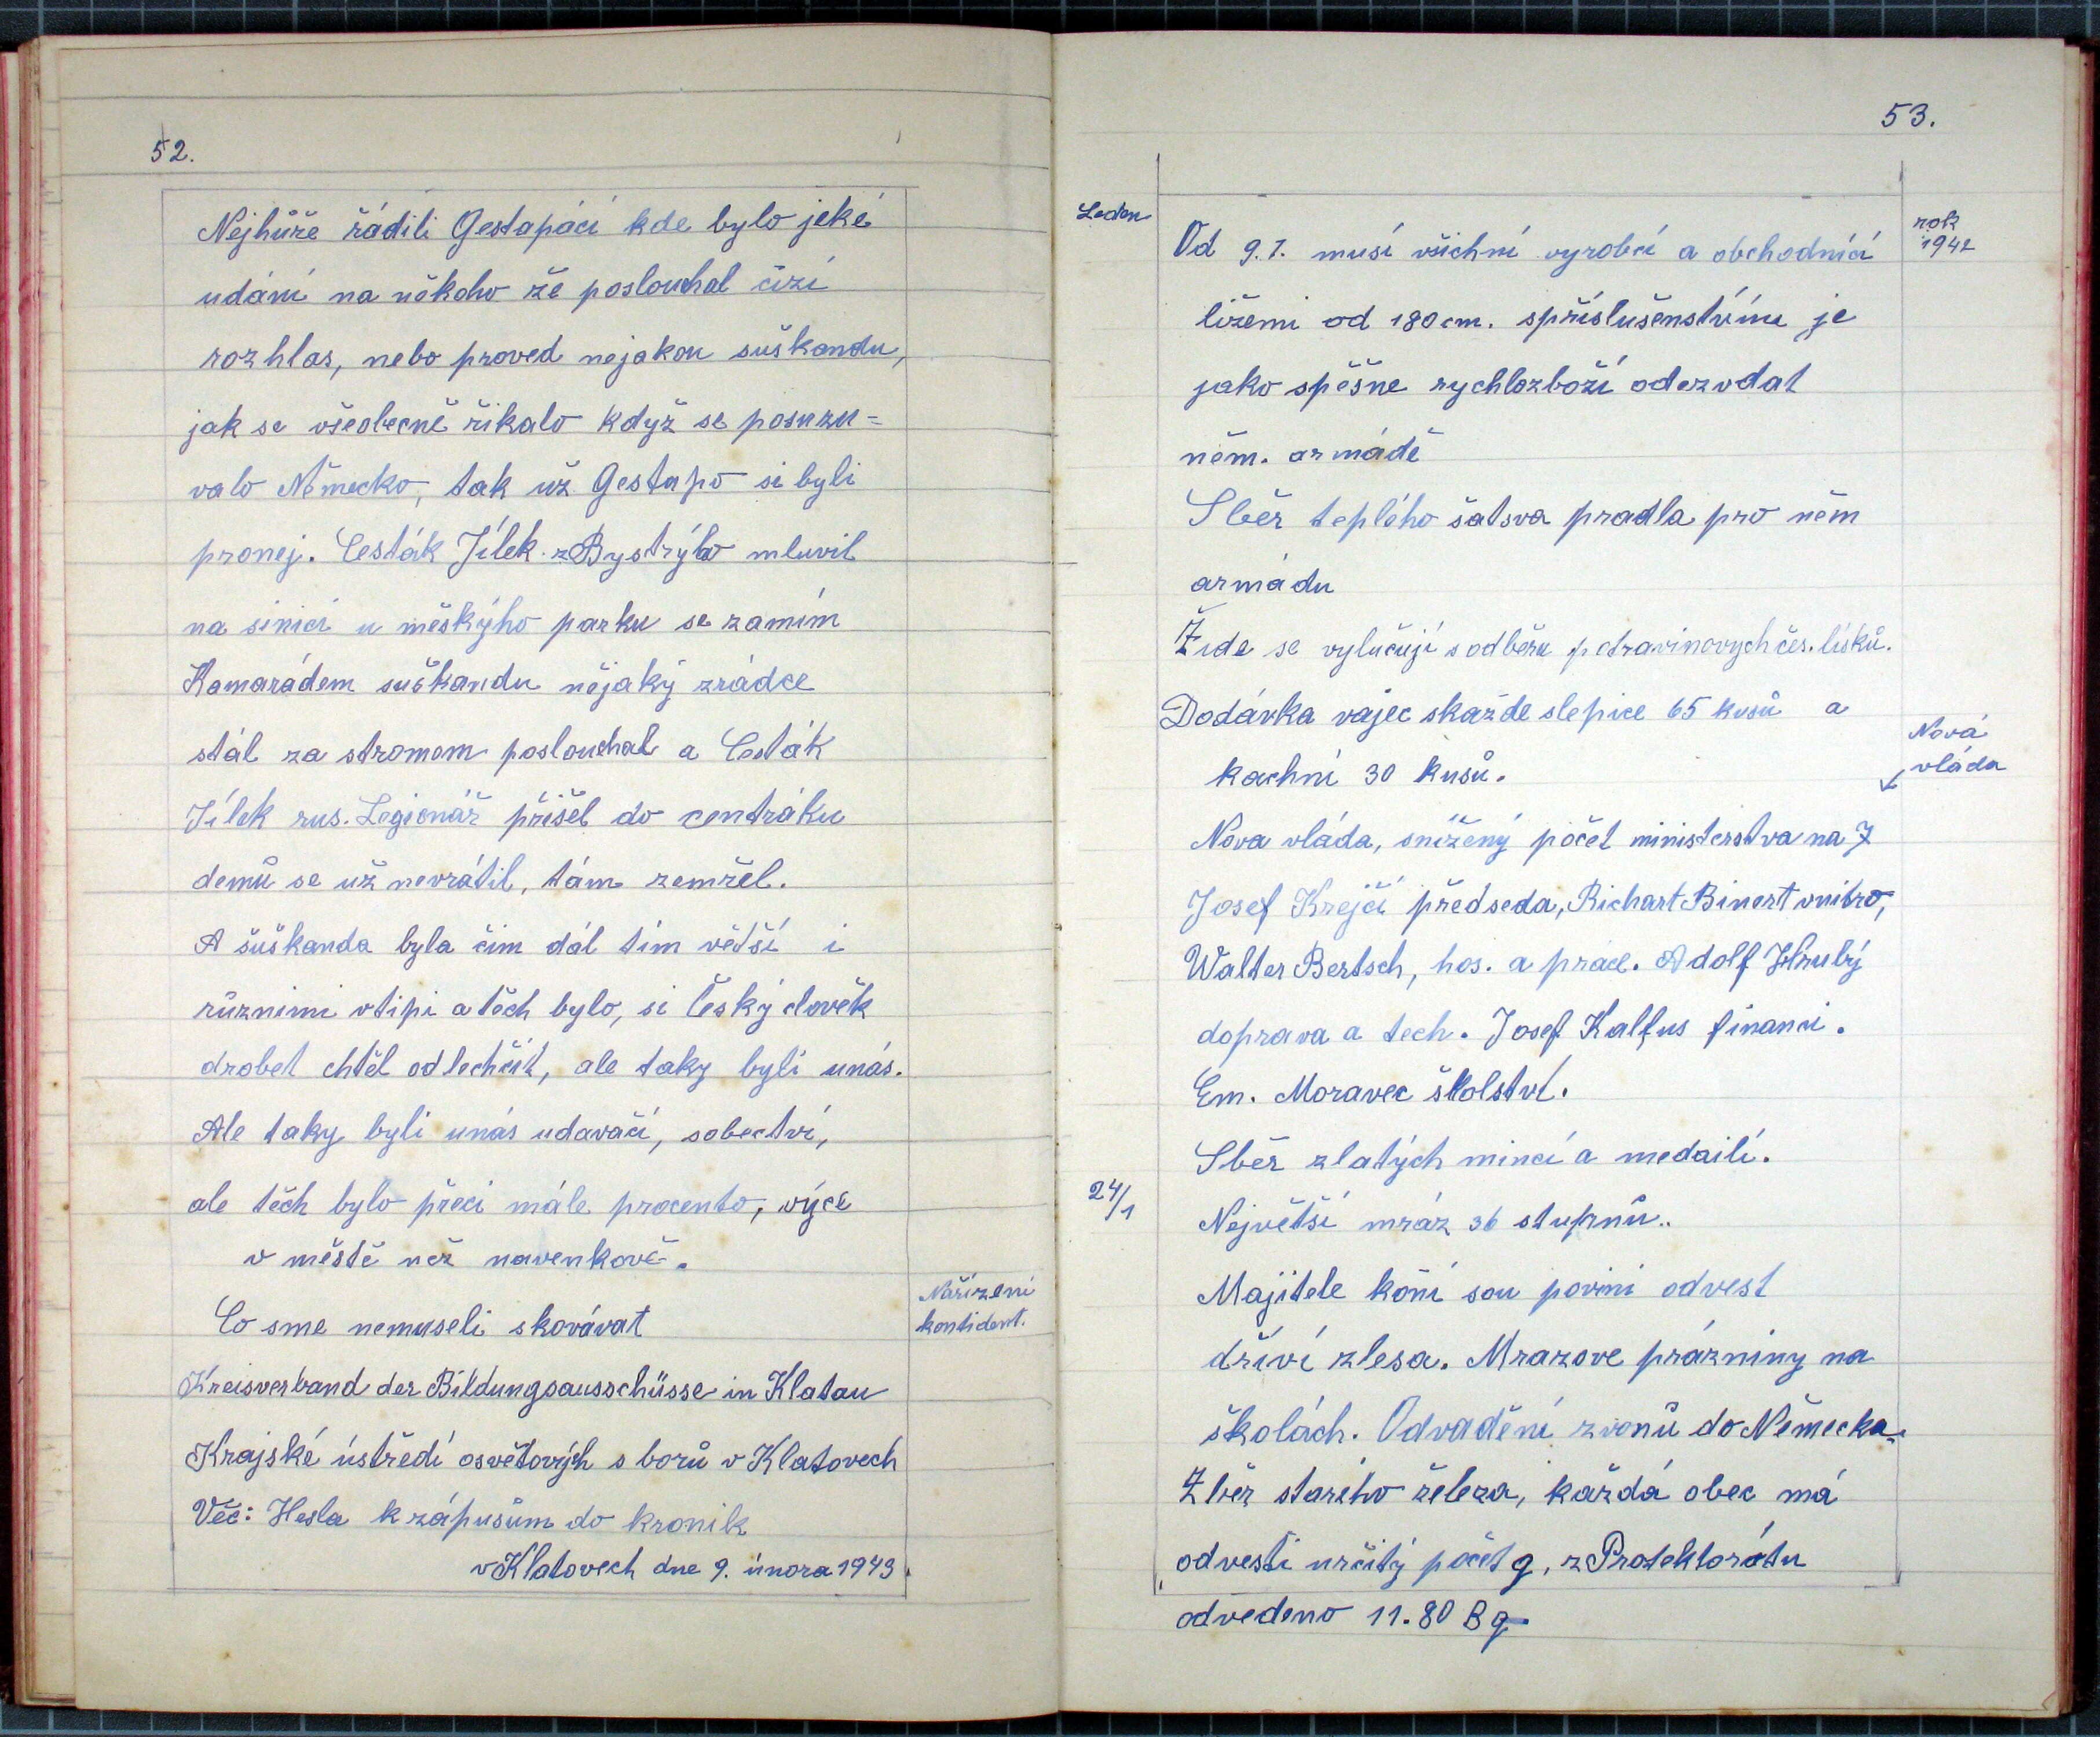 52.
Nejhůře řádili Gestapáci kde bylo jeké
udání na někoho že poslouchal čizí
rozhlas, nebo proved nejakou šuškandu,
jak se všeobecně řikalo když se posuzu=
valo Německo, tak už Gestapo si byli
pronej. Cesták Jílek z Bystrýho mluvil
na sinici u měskýho parku se zamím
Kamarádem šuškandu nějaký zrádce
stál za stromem poslouchal a Cesták
Jílek rus. Legionář přišel do centráku
domů se už nevrátil, tám zemřel.
A šuškanda byla čim dál tím větší i
různimi vtipi a těch bylo, si Český clověk
drobet chtěl odlechčit, ale taky byli unás.
Ale taky byli unás udavači, sobectví,
ale těch bylo přeci mále procento, výce
v městě než navenkově.
Nařízení
kontident.
Co sme nemuseli skovávat
Kreisverband der Bildungsausschüsse in Klatau
Krajské ústředí osvětových sborů v Klatovech
Věc: Hesla k zápusům do kronik
v Klatovech dne 9. února 1943.
53.
Leden
rok
1942
Od 9.1. musí všichní vyrobci a obchodníci
ližemi od 180 cm. spříslušenstvímu je
jako spěšne rychlozboží odezvdat
něm. armádě
Sběr teplého šatsva pradla pro něm
armádu
Žide se vylučují s odběru potravinovych čes. lísků.
Dodávka vajec skažde slepice 65 kusů a
kachní 30 kusů.
Nová
vláda
Nova vláda, snížený počet ministerstva na 7
Josef Krejčí předseda, Richart Binert vnitro,
Walter Bertsch, hos. a prace. Adolf Hrubý
doprava a tech. Josef Kalfus financi.
Em. Moravec školství.
Sběr zlatých mincí a medailí.
24/1
Největší mráz 36 stupňů..
Majitele koňí sou povini odvest
dříví zlesa. Mrazove prázniny na
školách. Odvadění zvonů do Německa.
Zběr starého železa, každá obec má
odvesti určitý počet q, z Protektorátu
odvedeno 11.80 B q.